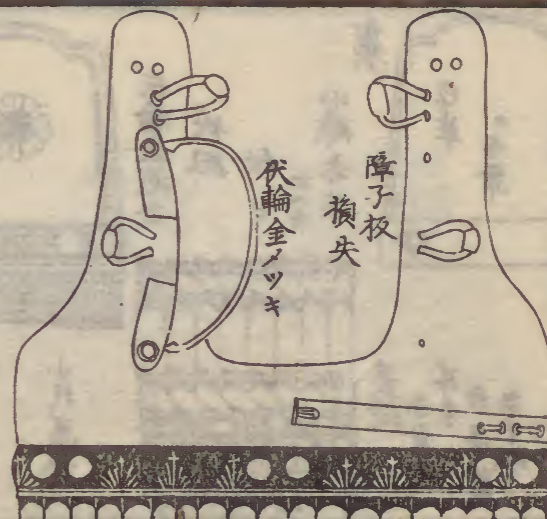 障子板
損失
伏輪金メツキ